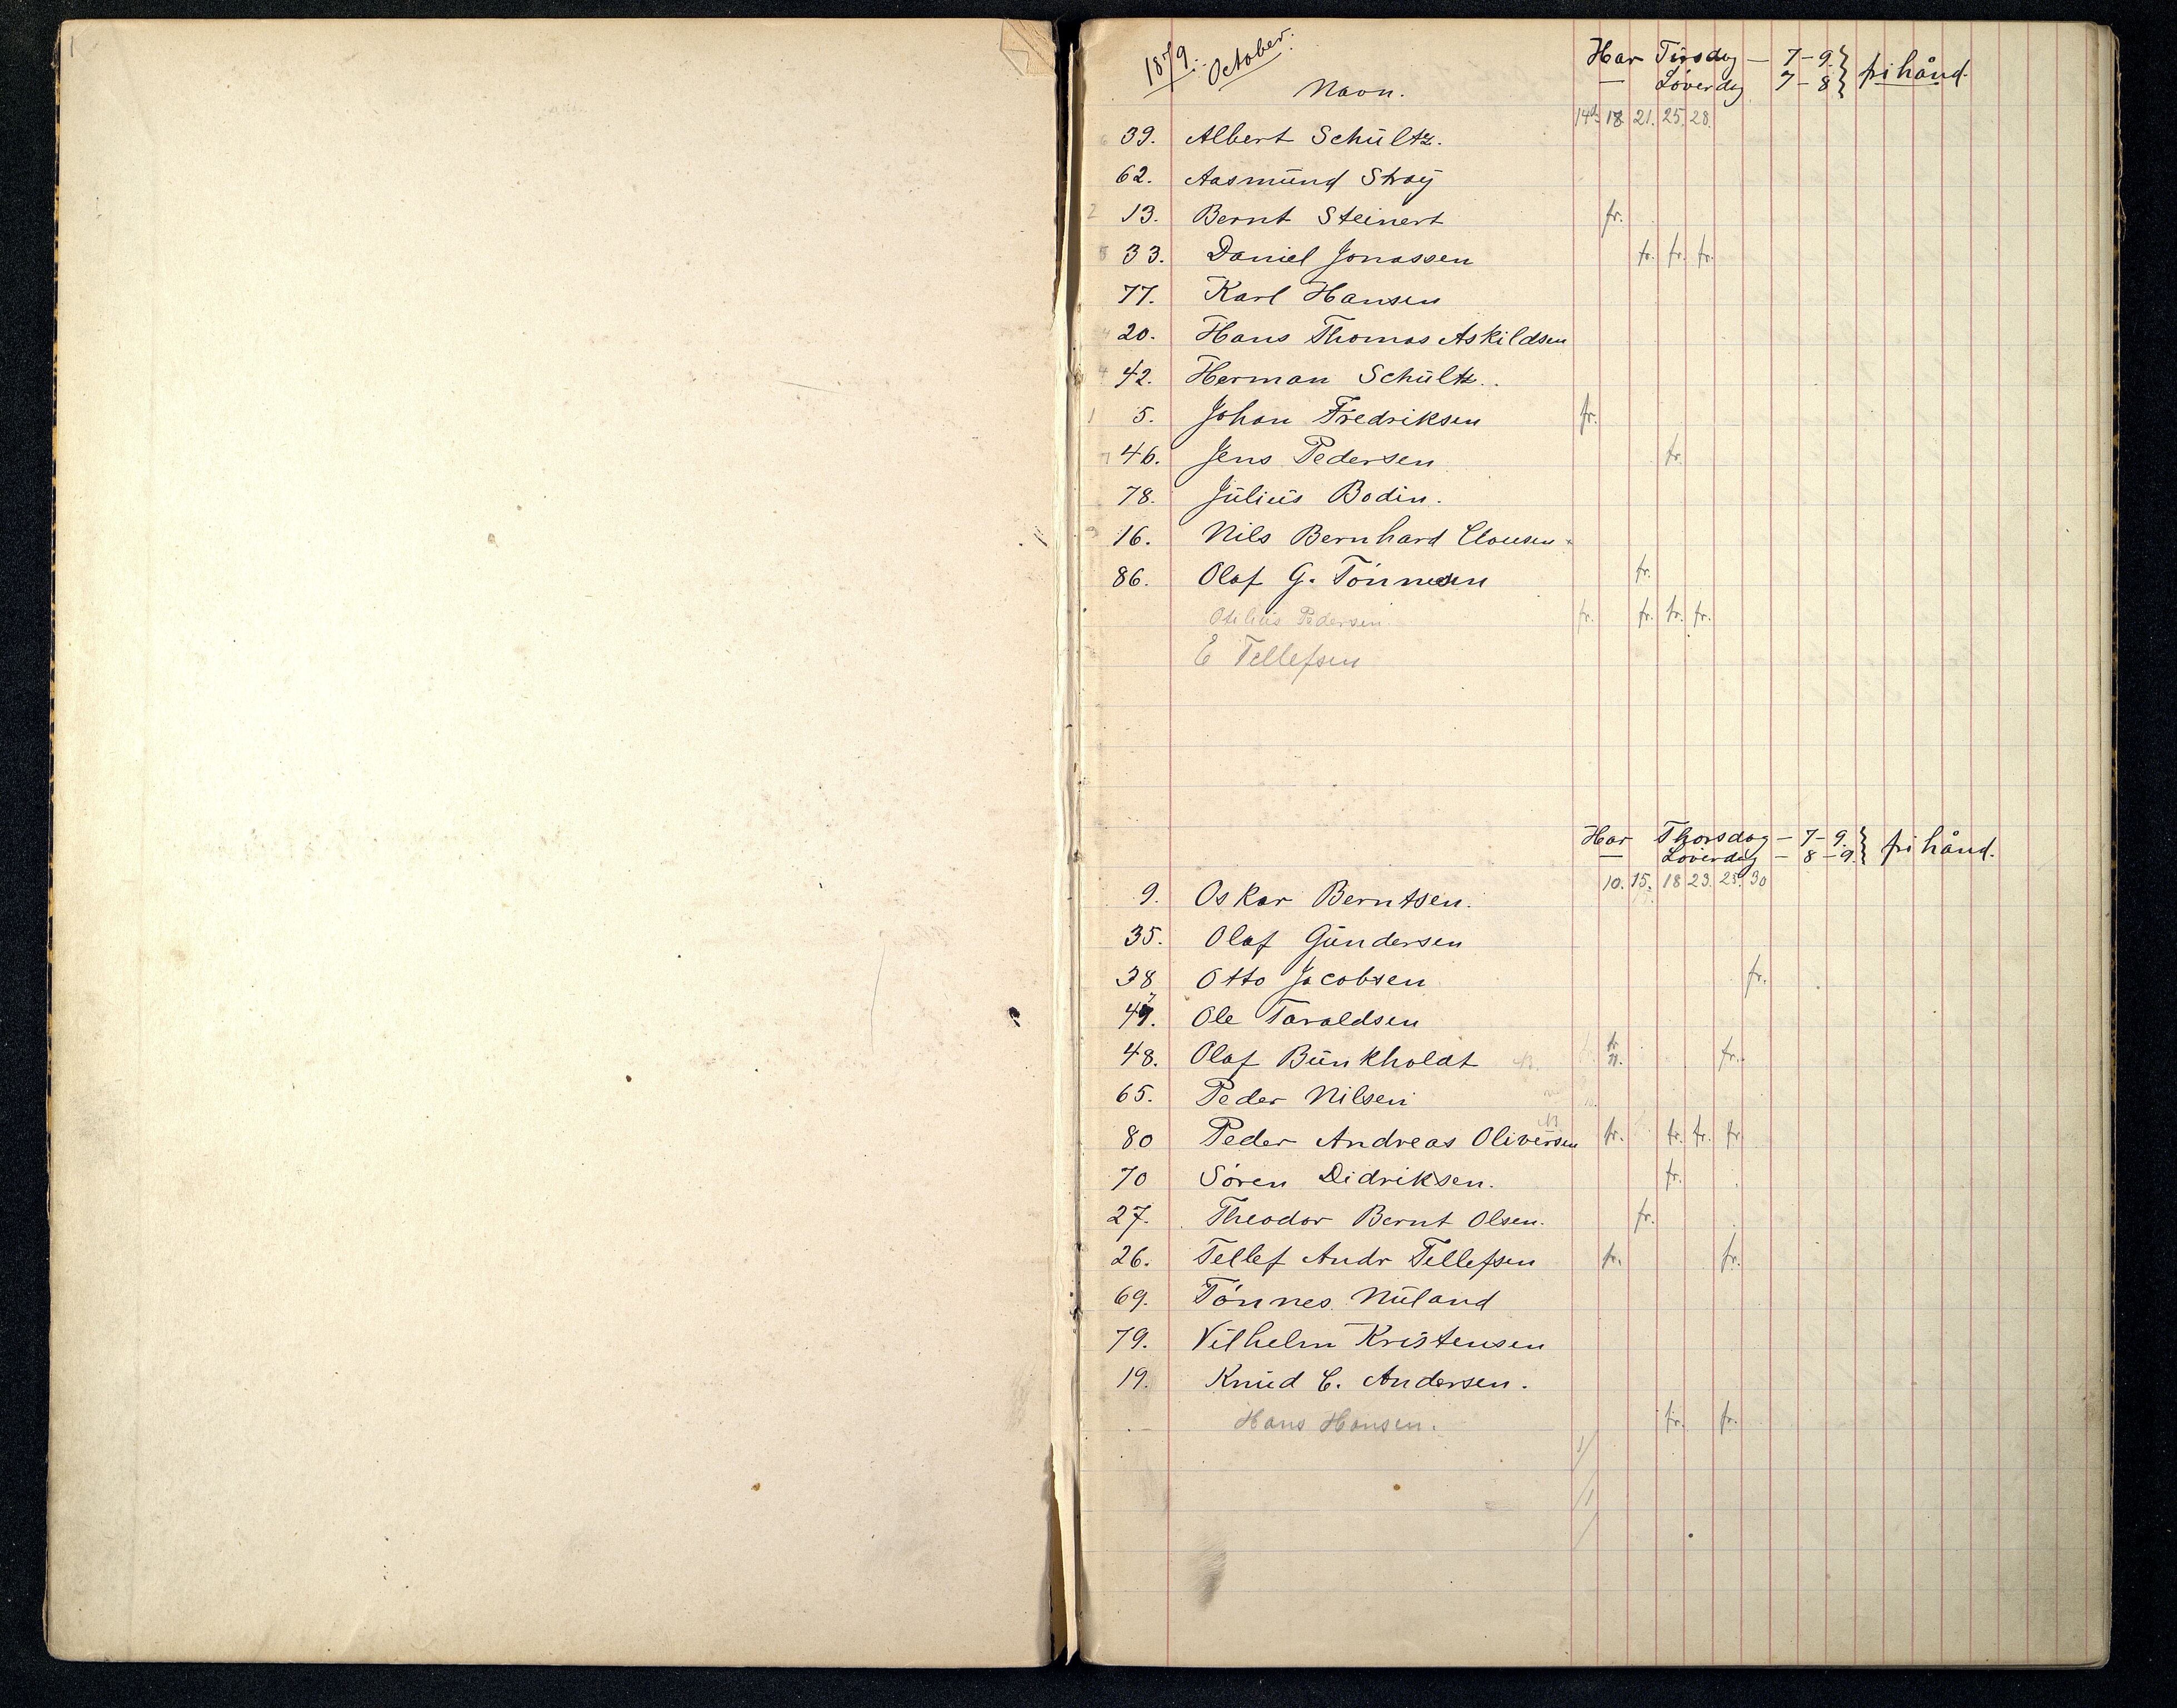 1
1879. October.
Har Tirsdag — 7–9. } frihånd.
— Löverdag 7–8 }
Navn.
14d. 18. 21. 25. 28.
6 39. Albert Schültz.
62. Aasmünd Stray
2 13. Bernt Steinert fr.
5 33. Daniel Jonassen fr. fr. fr.
77. Karl Hansen
4 20. Hans Thomas Askildsen
42. Herman Schültz.
1 5. Johan Fredriksen fr.
7 46. Jens Pedersen fr.
78. Jüliüs Bodin.
3 16. Nils Bernhard Clausen
86. Olaf G. Tönnesen fr.
Otiliüs Pedersen fr. fr. fr. fr.
E Tellefsen
Har Thorsdag — 7–9. } frihånd.
— Löverdag — 8–9. }
10. 15. 18 23. 25. 30
9. Oskar Berntsen.
35. Olaf Gündersen
38 Otto Jacobsen fr.
47. Ole Taraldsen
48. Olaf Bünkholdt fr. n. fr.
65. Peder Nilsen
80 Peder Andreas Oliversen fr. fr. fr. fr
70 Sören Didriksen. fr.
27. Theodor Bernt Olsen. fr.
26. Tellef Andr Tellefsen fr. fr.
69. Tönnes Nüland
79. Vilhelm Kristensen
19. Knüd C. Andersen.
Hans Hansen. fr. fr.